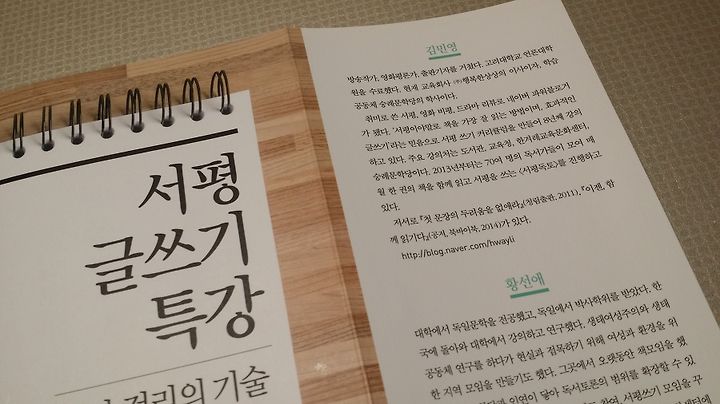 서평
글쓰기
특강
정리의 기술
김민영
방송작가, 영화평론가, 출판기자를 거쳤다. 고려대학교 언론대학
원을 수료했다. 현재 교육회사 ㈜행복한상상의 이사이자, 학습
공동체 숭례문학당의 학사이다.
취미로 쓴 서평, 영화 비평, 드라마 리뷰로 네이버 파워블로거
가 됐다. '서평이야말로 책을 가장 잘 읽는 방법'이며, 효과적인
글쓰기'라는 믿음으로 서평 쓰기 커리큘럼을 만들어 8년째 강의
하고 있다. 주요 강의처는 도서관, 교육청, 한겨레교육문화센터,
숭례문학당이다. 2013년부터는 70여 명의 독서가들이 모여 매
월 한 권의 책을 함께 읽고 서평을 쓰는 <서평독토>를 진행하고
있다.
저서로 『첫 문장의 두려움을 없애라』(청림출판, 2011), 『이젠, 함
께 읽기다』(공저, 북바이북, 2014)가 있다.
http://blog.naver.com/hwayli
황선애
대학에서 독일문학을 전공했고, 독일에서 박사학위를 받았다. 한
국에 돌아와 대학에서 강의하고 연구했다. 생태여성주의와 생태
공동체 연구를 하다가 현실과 접목하기 위해 여성과 환경을 위
한 지역 모임을 만들기도 했다. 그곳에서 오랫동안 책모임을 했
인연이 닿아 독서토론의 범위를 확장할 수 있
참여, 서평쓰기 모임을 꾸